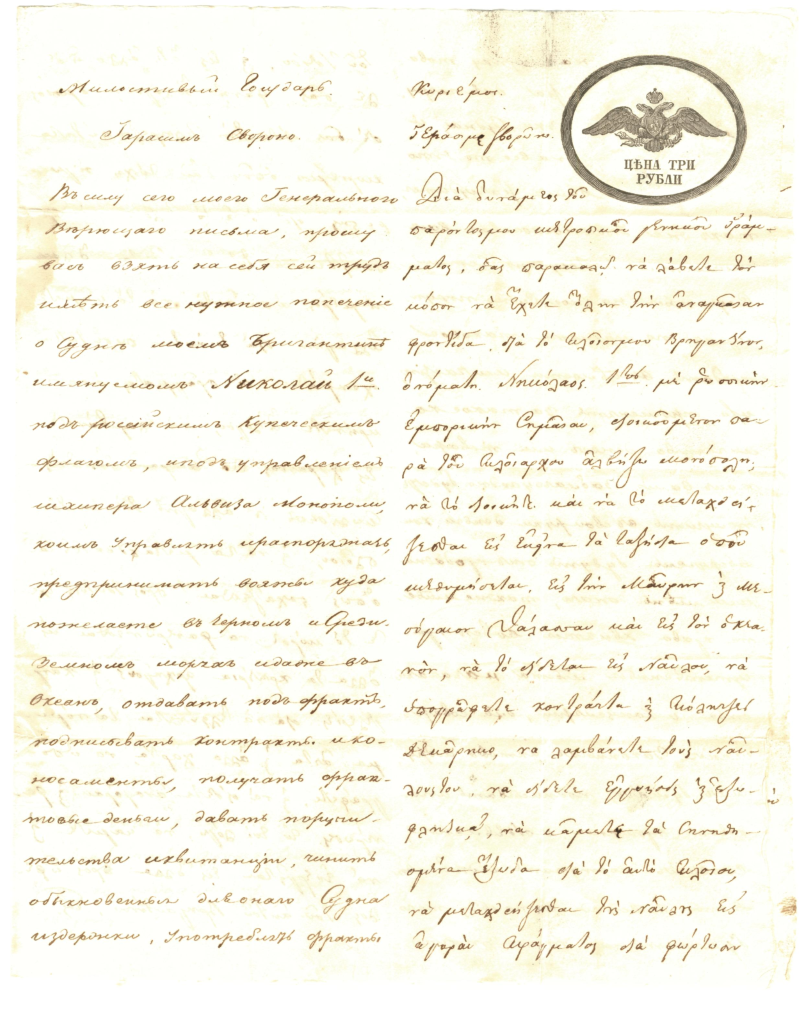 Милостивый Государь.
Гарасимъ Свороно.
Въ силу сего моего Генеральнаго
Вѣрющаго письма, прошу
васъ взять на себя сей трудъ
имѣть все нужное попеченіе
о Суднѣ моемъ Бригантинѣ
имянуемомъ Николай 1й
подъ россійскимъ Купеческимъ
флагомъ, и подъ управленіемъ
шкипера Альвиза Монополи,
коимъ Управлять и распоряжать,
предпринимать вояжы куда
пожелаете въ Черномъ и Среди-
Земномъ морчах и даже въ
Океанъ, отдавать подъ фрахтъ,
подписывать контракты и ко-
носаменты, получать фрах-
товые деньги, давать поручи-
тельства и квитанціи, чинить
обыкновенныя для онаго Судна
издержки, Употреблять фрахты
Κύριε μοι.
Γεράσιμε Σβορῶνο.
Διὰ δυνάμεως τοῦ
παρόντος μου ἐπιτροπικοῦ γενικοῦ γράμ-
ματος, σᾶς παρακαλῶ νὰ λάβετε τὸν
κόπον νὰ ἔχετε ὅλην τὴν ἀναγκαίαν
φροντίδα διὰ τὸ πλοῖον μου Βρηγαντίνον,
ὀνόματι Νηκόλαος 1τος με ῥωσσικὴν
Ἐμπορικὴν Σημαίαν, διοικούμενον πα-
ρὰ τοῦ πλοιάρχου Ἀλβήζω Μονόπολη,
νὰ τὸ διοικῆτε καὶ νὰ τὸ μεταχει-
ρίζεσθαι εἰς ἐκεῖνα τὰ ταξήδια ὁποῦ
ἐπιθυμήσεται, εἰς τὴν Μαύρην καὶ Με-
σόγαιον Θάλασσαν καὶ εἰς τὸν ὀκεα-
νὸν, νὰ τὸ δίδεται εἰς Ναῦλον, νὰ
ὑπογράφετε κοντράτα καὶ πόλητζες
δεκάρηκο, να λαμβάνετε τοὺς ναύ-
λους του, νὰ δίδετε ἐγγυήσεις καὶ ἐξω-
φλητικὰ, νὰ κάμετε τὰ συνηθη-
σμένα ἔξωδα διὰ τὸ αὐτὸ πλοῖον,
νὰ μεταχειρίζεσθαι τοὺς ναύλους εἰς
ἀγορὰν πράγματος διὰ φόρτωσιν
ЦѢНА ТРИ
РУБЛИ